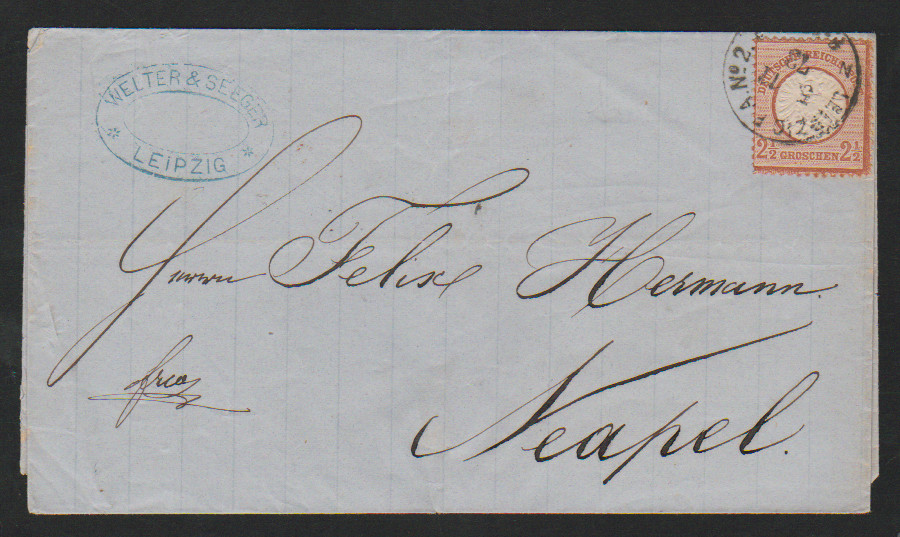 WELTER & SEEGER
LEIPZIG
P.A. No. 2.
DEUTSCHE REICHS
2½ GROSCHEN 2½
Herrn Felix Hermann.
frco
Neapel.